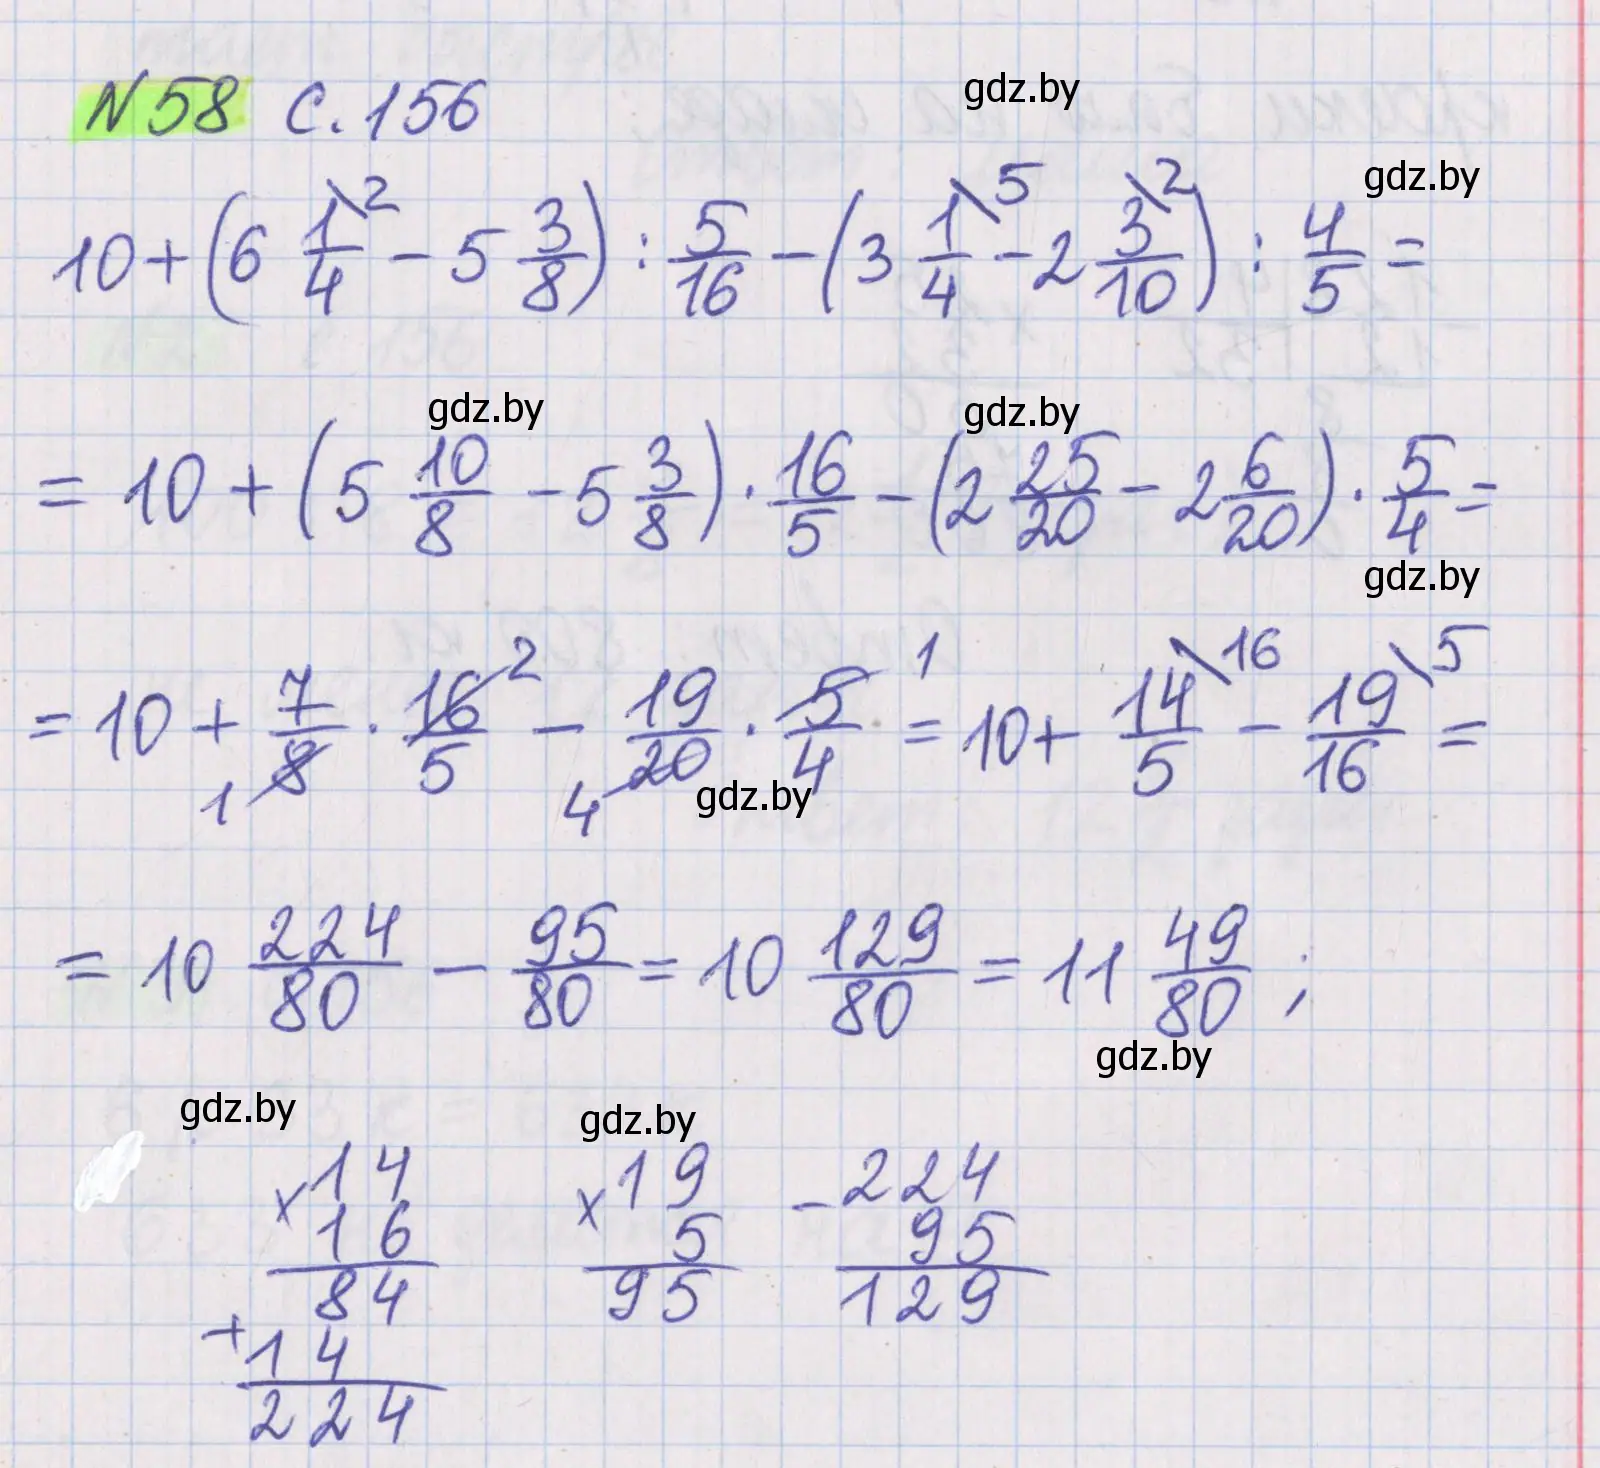 N 58 с. 156
gdz.by
gdz.by
10 + (6 1/4 \2 - 5 3/8) : 5/16 - (3 1/4 \5 - 2 3/10 \2) : 4/5 =
gdz.by
gdz.by
= 10 + (5 10/8 - 5 3/8) · 16/5 - (2 25/20 - 2 6/20) · 5/4 =
gdz.by
= 10 + 7/8 1 · 16/5 2 - 19/20 4 · 5/4 1 = 10 + 14/5 \16 - 19/16 \5 =
gdz.by
= 10 224/80 - 95/80 = 10 129/80 = 11 49/80 ;
gdz.by
gdz.by
gdz.by
× 14
16
84
+ 14
224
× 19
5
95
- 224
95
129